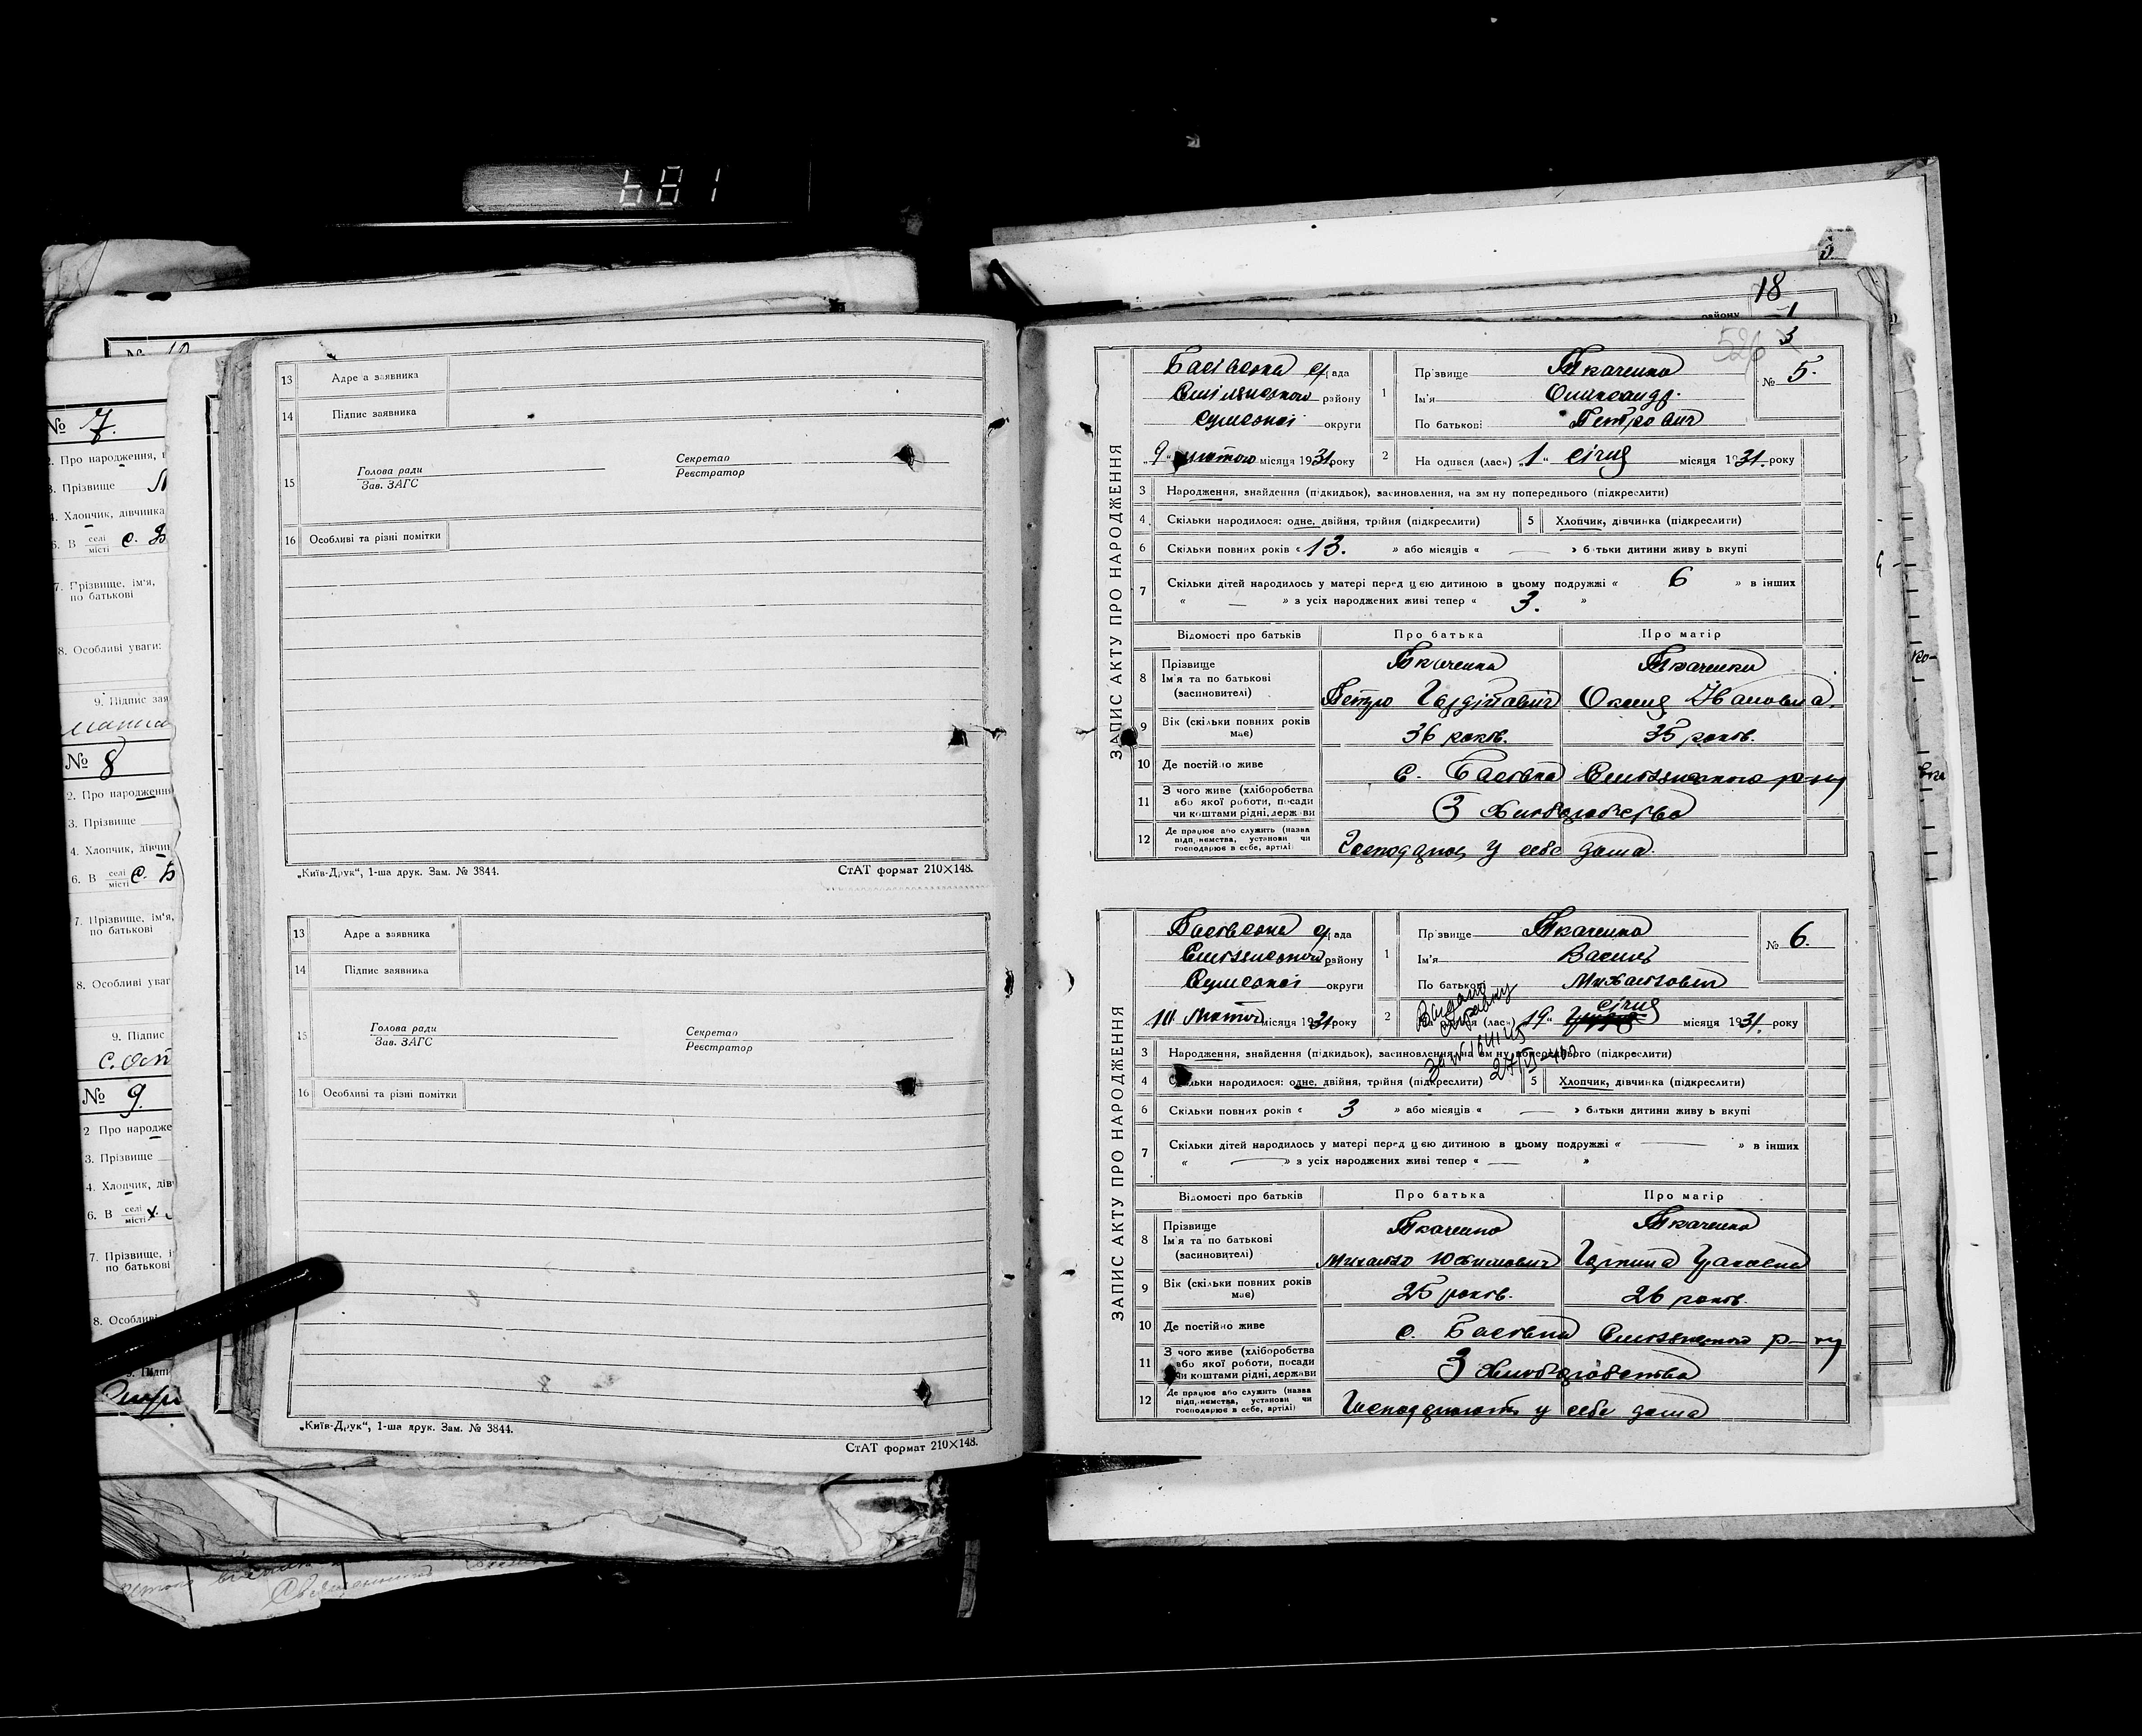 681
№ 7.
2. Про народження,
3. Прізвище
4. Хлопчик, дівчинка
6. В селі місті с.
7. Прізвище, ім'я,
по батькові
8. Особливі уваги:
9. Підпис
№ 8
2. Про народження
3. Прізвище
4. Хлопчик,
6. В селі місті с. Б
7. Прізвище, ім'я,
по батькові
8. Особливі
9. Підпис
№ 9.
2 Про
3. Прізвище
4. Хлопчик,
6. В селі місті х.
7. Прізвище,
по батькові
8.
13 Адре а заявника
14 Підпис заявника
15 Голова ради Секретар
Зав. ЗАГС Реєстратор
16 Особливі та різні помітки
„Київ-Друк“, 1-ша друк. Зам. № 3844. СтАТ формат 210×148.
13 Адре а заявника
14 Підпис заявника
15 Голова ради Секретар
Зав. ЗАГС Реєстратор
16 Особливі та різні помітки
„Київ-Друк“, 1-ша друк. Зам. № 3844.
СтАТ формат 210×148.
18
району 1
526 3
ЗАПИС АКТУ ПРО НАРОДЖЕННЯ
Басівська с/рада 1 Прізвище Ткаченко № 5.
району Ім'я Олександр.
Сумської округи По батькові Петрович
„9“ лютого місяця 1931 року 2 На одився (лась) „1“ січня місяця 1931. року
3 Народження, знайдення (підкидьок), засиновлення, на зм ну попереднього (підкреслити)
4 Скільки народилося: одне, двійня, трійня (підкреслити) 5 Хлопчик, дівчинка (підкреслити)
6 Скільки повних років « 13. » або місяців « — » батьки дитини живу ь вкупі
7 Скільки дітей народилось у матері перед цією дитиною в цьому подружжі « 6 » в інших
« — » з усіх народжених живі тепер « 3. »
Відомості про батьків Про батька Про матір
8 Прізвище Ткаченко Ткаченко
Ім'я та по батькові Петро Оксана Івановна
(засиновителі)
9 Вік (скільки повних років має) 36 років. 35 років.
10 Де постійно живе с. Басівка р-ну
11 З чого живе (хліборобства або якої роботи, посади чи коштами рідні, держави З Хліборобства
12 Де працює або служить (назва підприємства, установи чи господарює в себе, артілі) у себе дома.
ЗАПИС АКТУ ПРО НАРОДЖЕННЯ
Басівська с/рада 1 Прізвище Ткаченко № 6.
району Ім'я Василь
Сумської округи По батькові Михайлович
місяця 1931 року 2 (лась) „19“ січня місяця 1931. року
Видано довідку
27/VI
3 Народження, знайдення (підкидьок), засиновлення, на зм ну попереднього (підкреслити)
4 Скільки народилося: одне, двійня, трійня (підкреслити) 5 Хлопчик, дівчинка (підкреслити)
6 Скільки повних років « 3 » або місяців « — » батьки дитини живу ь вкупі
7 Скільки дітей народилось у матері перед цією дитиною в цьому подружжі « — » в інших
« — » з усіх народжених живі тепер « — »
Відомості про батьків Про батька Про матір
8 Прізвище Ткаченко Ткаченко
Ім'я та по батькові Михайло Юхимович
(засиновителі)
9 Вік (скільки повних років має) 25 років. 26 років.
10 Де постійно живе с. Басівка р-ну
11 З чого живе (хліборобства або якої роботи, посади чи коштами рідні, держави З Хліборобства
12 Де працює або служить (назва підприємства, установи чи господарює в себе, артілі) у себе дома